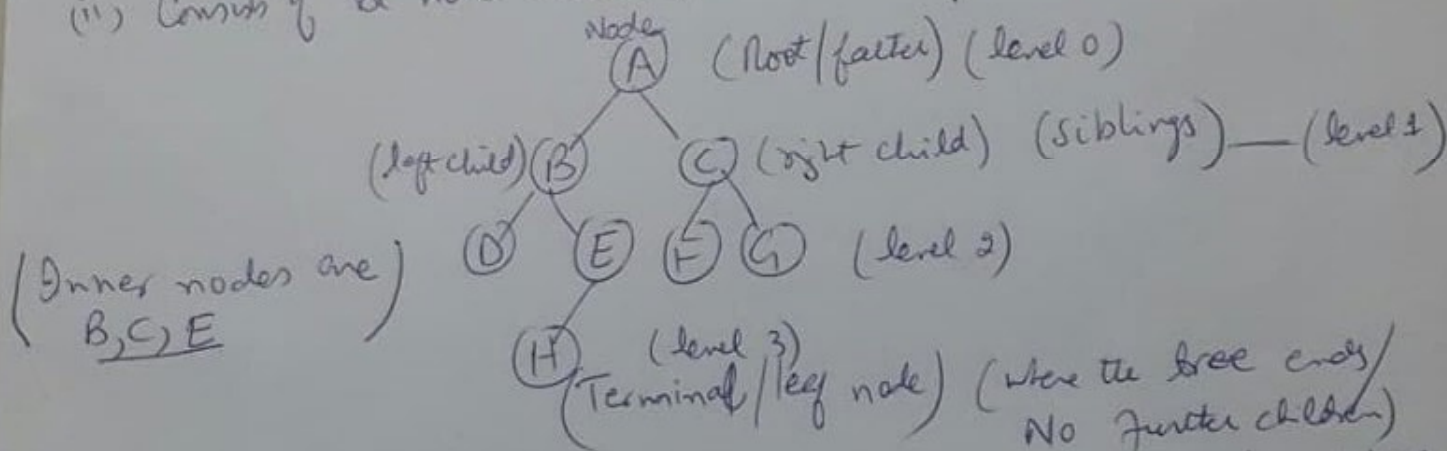 (ii) Consists of a
Node
A (Root/father) (level 0)
(left child) B C (right child) (siblings) — (level 1)
D E F G (level 2)
(Inner nodes are
B, C, E)
H (level 3)
(Terminal/leaf node) (where the tree ends/
No further children)